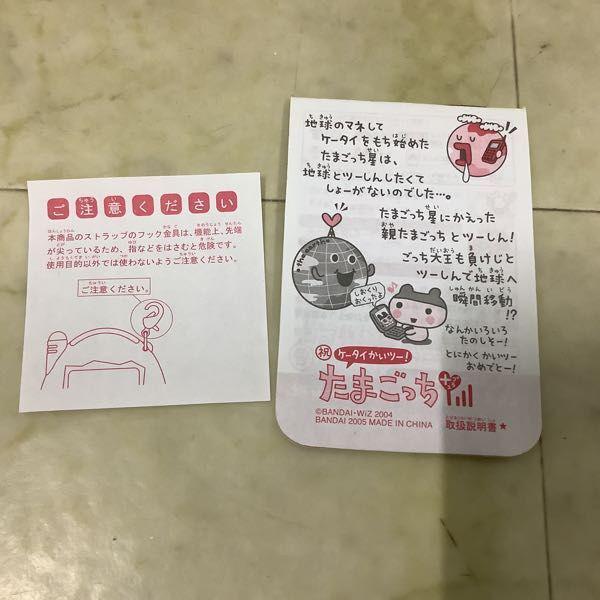 ご注意ください
本商品のストラップのフック金具は、機能上、先端
が尖っているため、指などをはさむと危険です。
使用目的以外では使わないようご注意ください。
ご注意ください。
地球のマネして
ケータイをもち始めた
たまごっち星は、
地球とツーしんしたくて
しょーがないのでした…。
たまごっち星にかえった
親たまごっちとツーしん!
ごっち大王も負けじと
ツーしんで地球へ
瞬間移動
!?
しおくり
おくったよ
なんかいろいろ
たのしそー!
とにかくかいツー
おめでとー!
祝 ケータイかいツー!
たまごっち
+
©BANDAI・WiZ 2004
BANDAI 2005 MADE IN CHINA
取扱説明書★